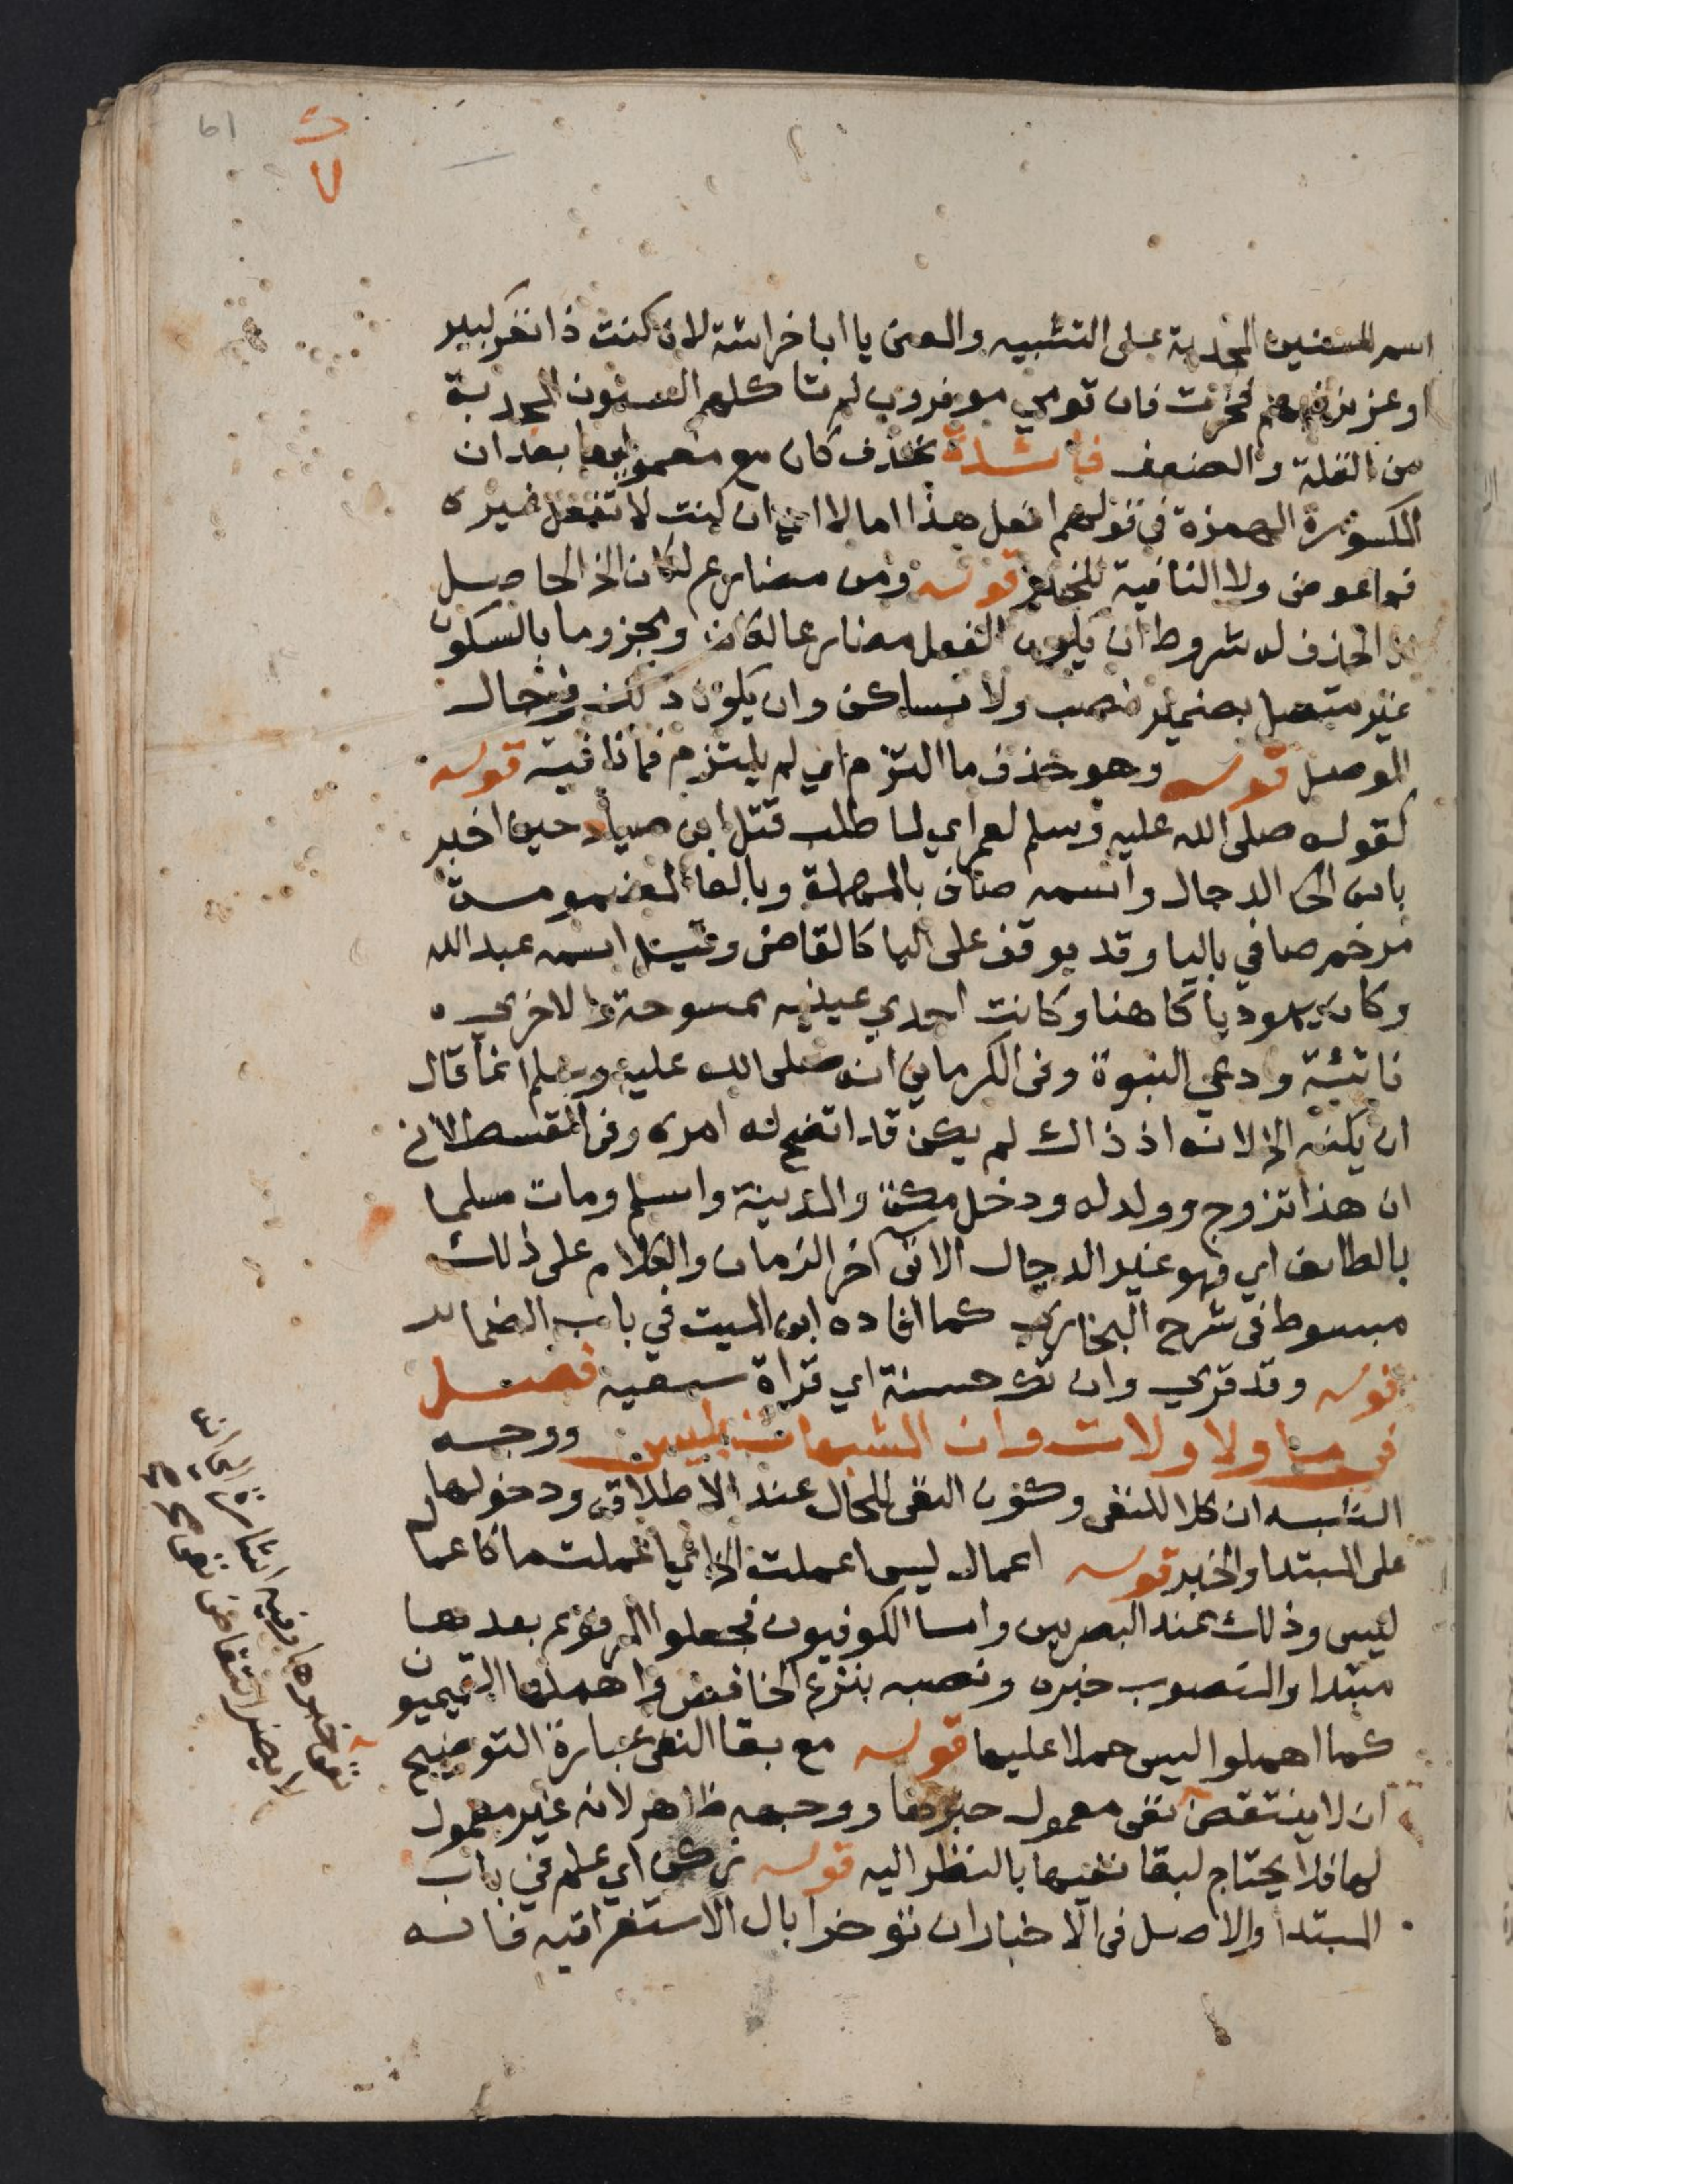 61
ك
٧
اسم للسنين المجدبة على التشبيه والمعنى يا ابا خراشة لان كنت ذا نفر كبير
او عزيزا فخرت فان قومي موفرون لم تاكلهم السنون المجدبة
من القلة والضعف فايدة تحذف كان مع معموليها بعد ان
المكسورة الهمزة في قولهم افعل هذا اما لا اي ان كنت لا تفعل غيره
فما عوض ولا النافية للخبر قوله ومن مضارع لكان الخ الحاصل
ان الحذف له شروط ان يكون الفعل مضارعا لكان ومجزوما بالسكون
غير متصل بضمير نصب ولا بساكن وان يكون ذلك في حال
الوصل قوله وهو حذف ما التزم اي لم يلتزم فما نافية قوله
كقوله صلى الله عليه وسلم لعمر اي لما طلب قتل ابن صياد حين اخبر
بانه الدجال واسمه صاف بالمهملة وبالفا المضمومة
مرخم صافي باليا وقد يوقف على اليا كالقاضى وقيل اسمه عبد الله
وكان يهوديا كاهنا وكانت احدي عينيه ممسوحة والاخرى
ناتئة ودعي النبوة وفى الكرماني انه صلى الله عليه وسلم انما قال
ان يكنه الخ لانه اذ ذاك لم يكن قد اتضح له امره وفى القسطلانى
ان هذا تزوج وولد له ودخل مكة والمدينة واسلم ومات مسلما
بالطائف اي فهو غير الدجال الاتى اخر الزمان والكلام على ذلك
مبسوط فى شرح البخاري كما افاده ابن الميت في باب الضمائر
قوله وقد قري وان تك حسنة اي قراة سبعية فصل
في ما ولا ولات وان المشبهات بليس ووجه
الشبه ان كلا للنفى وكون النفى للحال عند الاطلاق ودخولها
على المبتدا والخبر قوله اعمال ليس اعملت الخ اي اعملت ما كاعمال
ليس وذلك عند البصريين واما الكوفيون فجعلوا المرفوع بعدها
مبتدا والمنصوب خبره ونصبه بنزع الخافض واهملها التميميون
كما اهملوا ليس حملا عليها قوله مع بقا النفى عبارة التوضيح
ان لا ينتقض نفى معمول خبرها ووجهه ظاهر لانه غير معمول
لها فلا يحتاج لبقا نفيها بالنظر اليه قوله زكن اي علم في باب
المبتدا والاصل فى الاخبار ان توخرا بال الاستغراقيه فانه
نفى خبرها وفيه اشارة الى انه
لا يضر انتقاض نفى